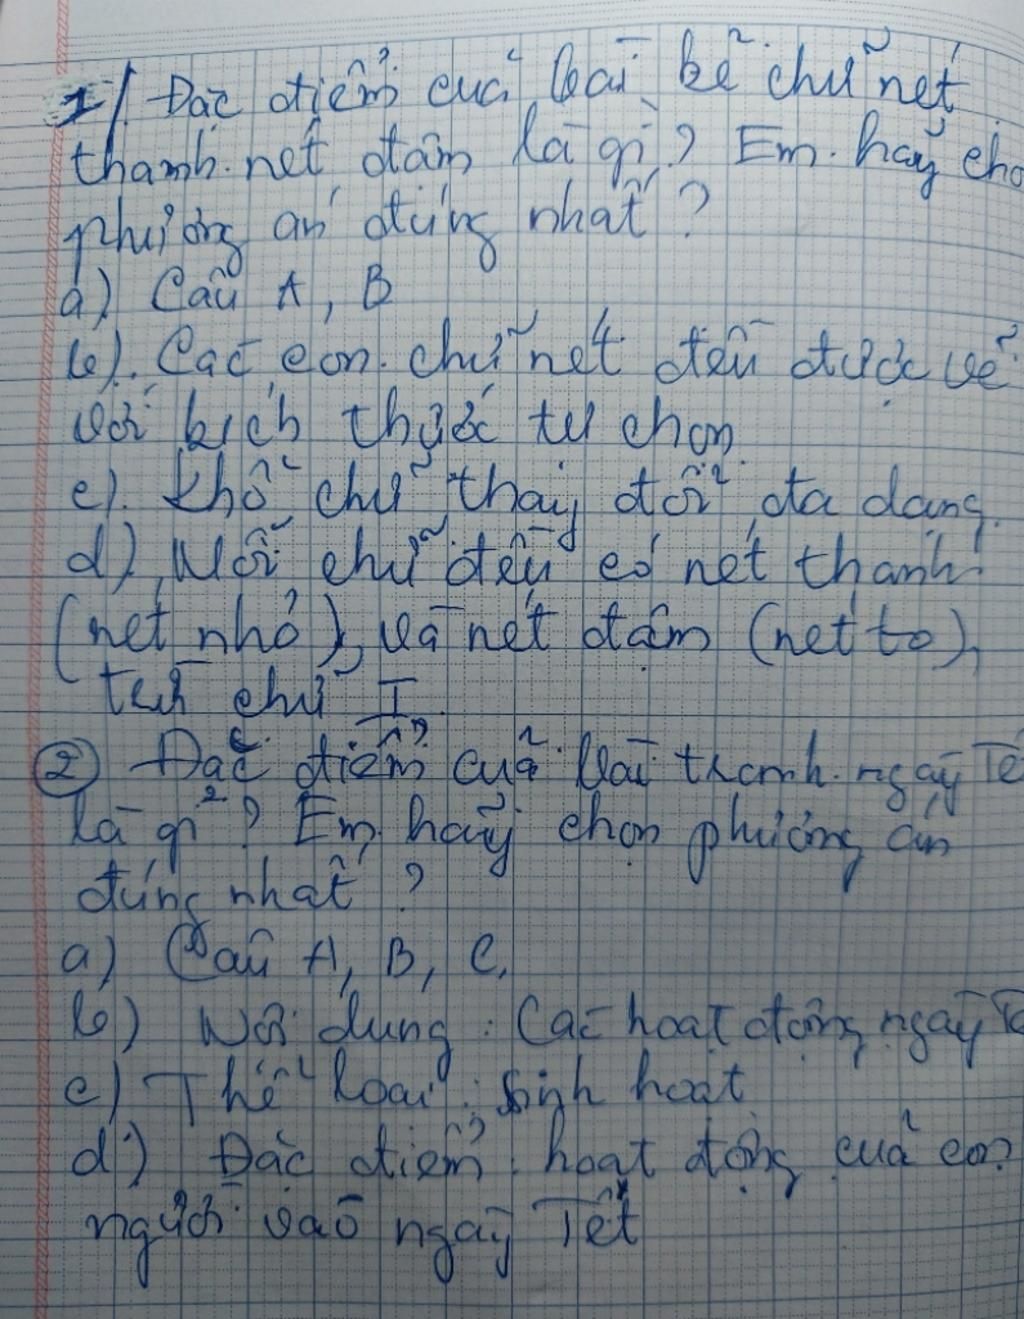 1/ Đặc điểm của bài kẻ chữ nét
thanh nét đậm là gì? Em hãy cho
phương án đúng nhất?
a) Câu A, B
b). Các con chữ nét đều được vẽ
với kích thước tự chọn
c). Khổ chữ thay đổi đa dạng.
d) Mỗi chữ đều có nét thanh
(nét nhỏ), và nét đậm (nét to),
trừ chữ I
② Đặc điểm của bài tranh ngày Tế
là gì? Em hãy chọn phương án
đúng nhất?
a) Câu A, B, C.
b) Nội dung: Các hoạt động ngày Tế
c) Thể loại: Sinh hoạt
d) Đặc điểm: hoạt động của con
người vào ngày Tết